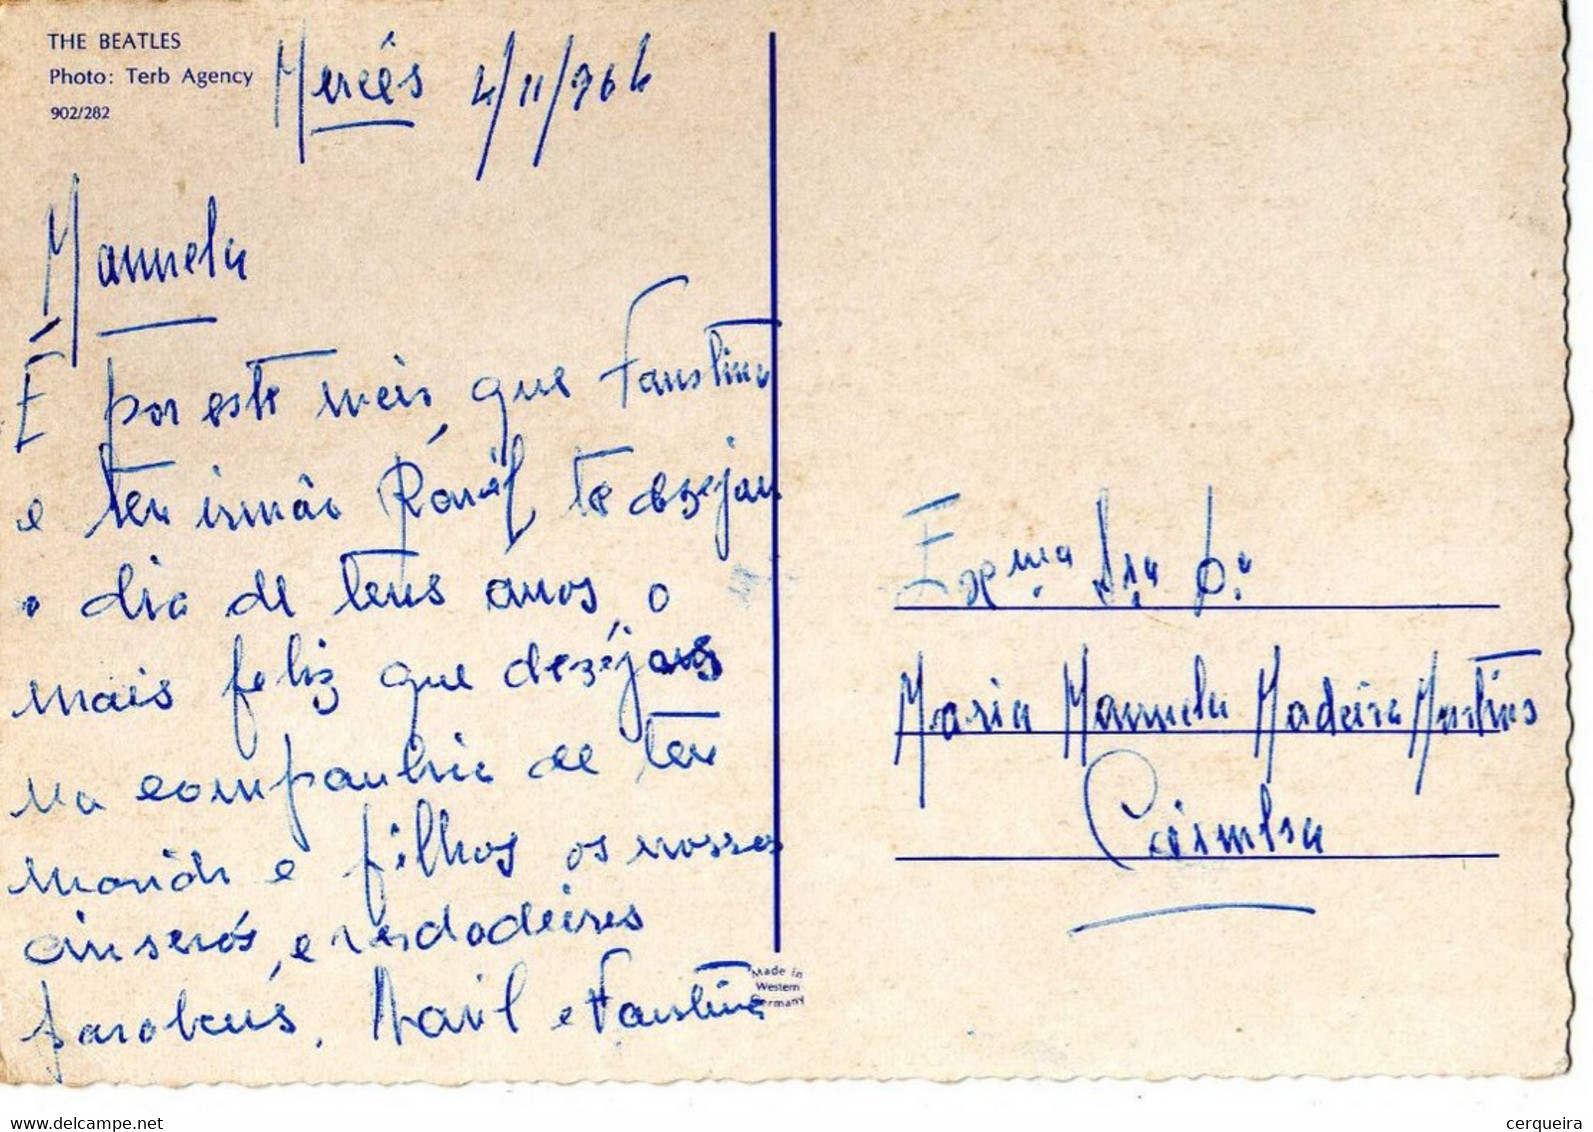 THE BEATLES
Photo: Terb Agency
902/282
Mercês 4/11/964
Manuela
É por este meio, que Faustino
e teu irmão te dezejam
o dia de teus anos, o
mais feliz que dezéjamos
na companhia de teu
marido e filhos os nossos
sinserós, e verdadeires
parabens. e Faustino
Made in
Western
Germany
Exma Sra D.a
Maria Manuela Madeira Martins
Coimbra
www.delcampe.net
cerqueira